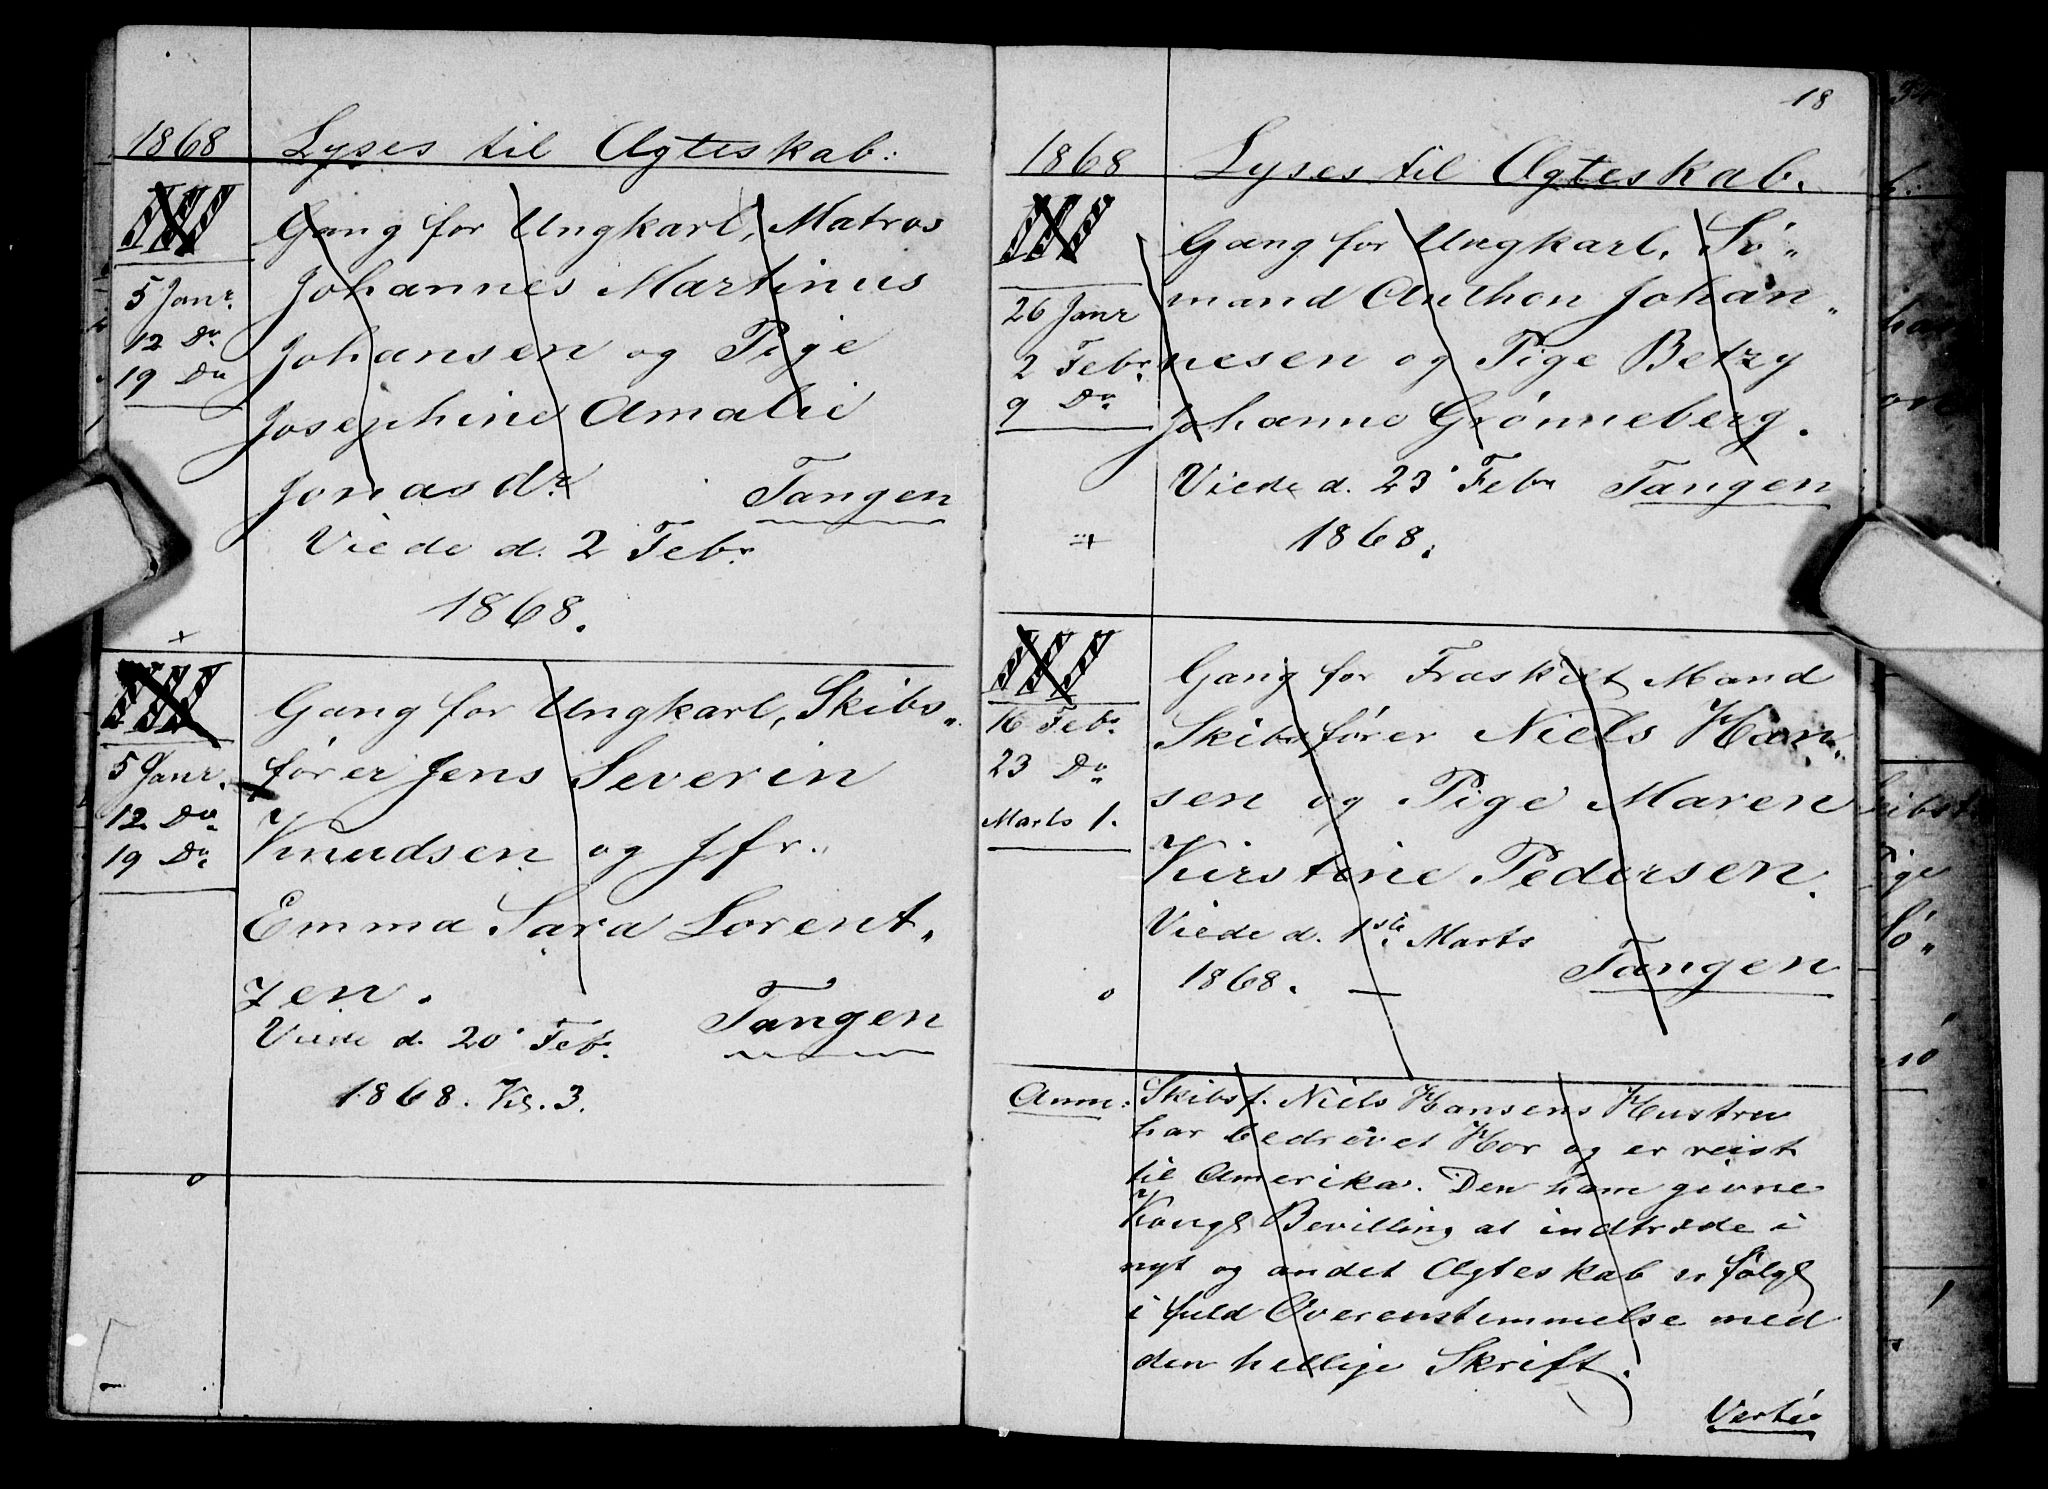 1868 Lyses til Ægteskab:
Gang for Ungkarl, Matros
5 Janr. Johannes Martinus
12 Do Johansen og Pige
19 Do Josephine Amalie
Jonasdr. Tangen
Viede d. 2 Febr.
1868.
+
Gang for Ungkarl, Skibs„
5 Janr. fører Jens Severin
12 Do Knudsen og Jfr.
19 Do Emma Sara Lorent„
zen. Tangen
Viede d. 20' Feb.
1868. Kl. 3.
o
18
1868 Lyses til Ægteskab.
Gang for Ungkarl, Sø„
26 Janr mand Anthon Johan„
2 Febr. nesen og Pige Betzy
9 Do Johanne Grønneberg.
Viede d. 23' Febr Tangen
1868.
Gang for Fraskilt Mand
16 Feb. Skibsfører Niels Han„
23 Do sen og Pige Maren
Marts 1. Kirstine Pedersen.
Viede d. 1ste Marts
1868. — Tangen
o
Anm: Skibsf. Niels Hansens Hustru
har bedrevet Hor og er reist
til Amerika. Den ham givne
Kongl Bevilling at indtræde i
nyt og andet Ægteskab er følgl
i fuld Overenstemmelse med
den hellige Skrift.
Verte